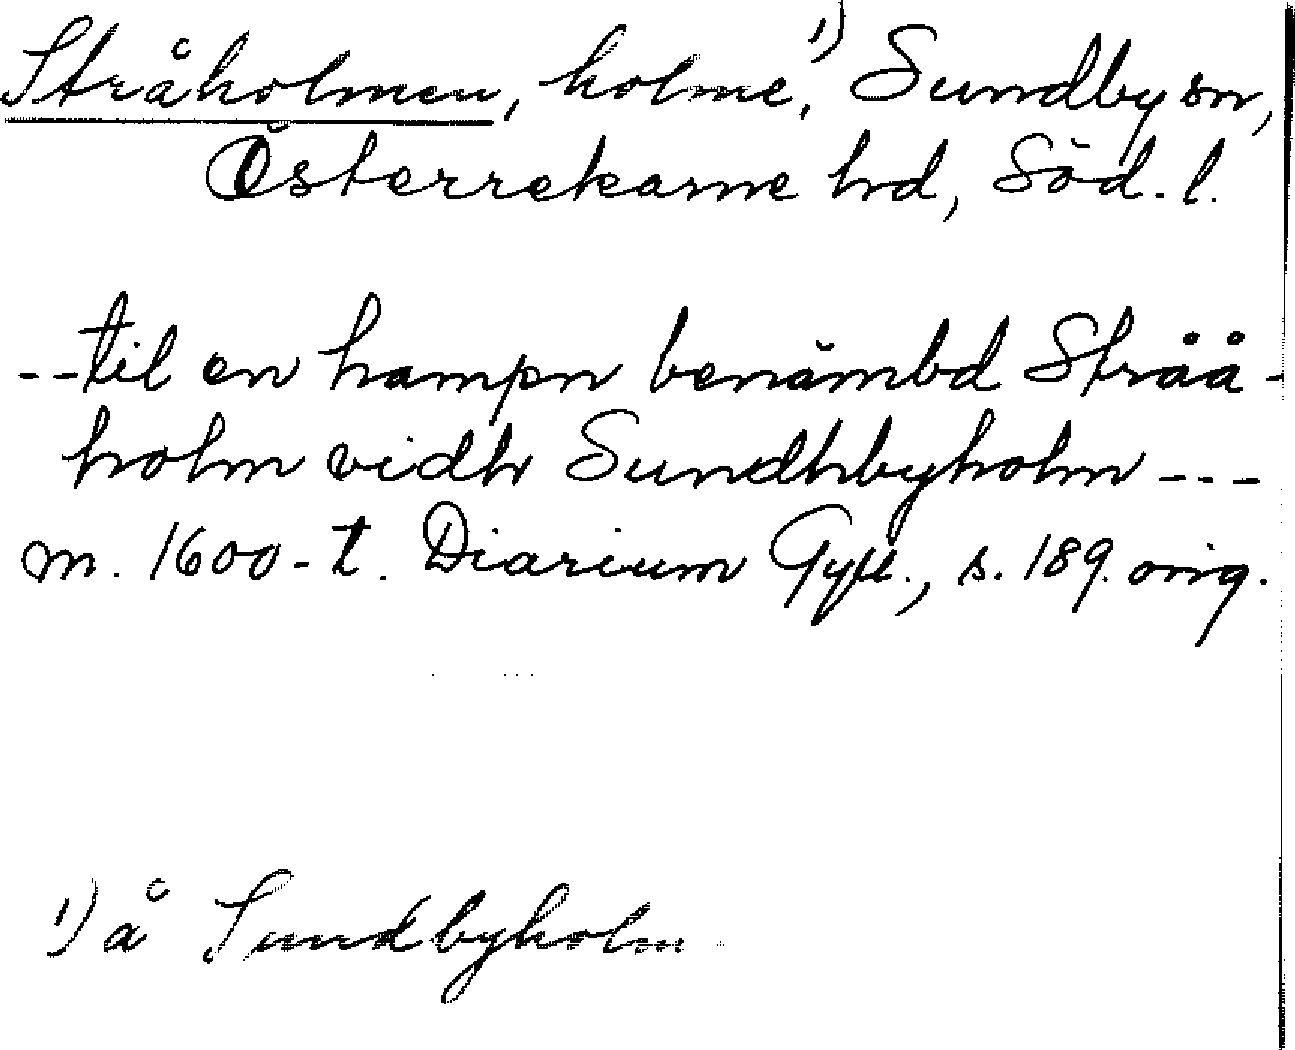 Stråholmen, holme,¹⁾ Sundby sn,
Österrekarne hd, Söd. l.
--til en hampn benämbd Stråå-
holm vidh Sundhbyholm ---
m. 1600-t. Diarium Gyll., s. 189. orig.
¹⁾ å Sundbyholm